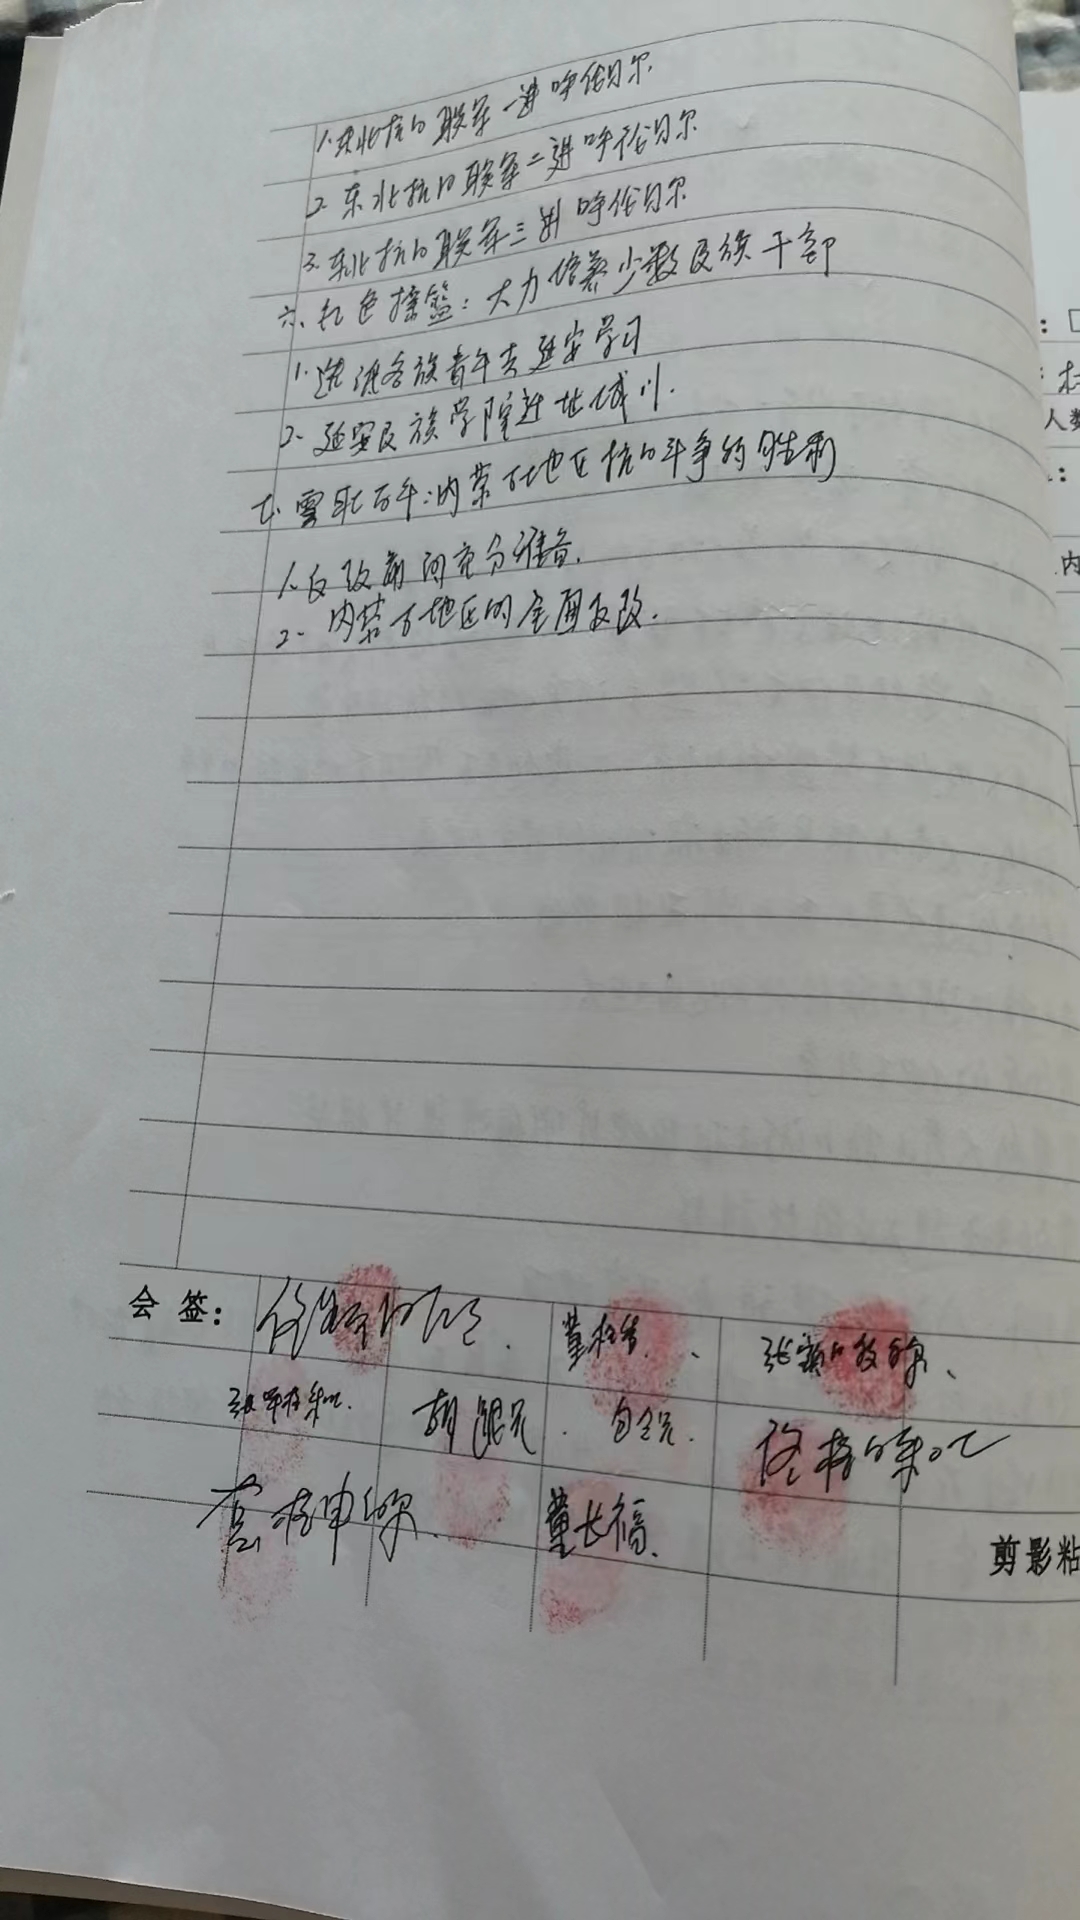 1.东北抗日联军一进呼伦贝尔
2.东北抗日联军二进呼伦贝尔
3.东北抗日联军三进呼伦贝尔
六.红色摇篮:大力培养少数民族干部
1.选派各族青年去延安学习
2.延安民族学院迁址城川.
七.雪耻百年:内蒙古地区抗日斗争的胜利
1.反攻前的充分准备.
2.内蒙古地区的全面反攻.
会 签:
董长福.
剪影粘
:
人数
:
内